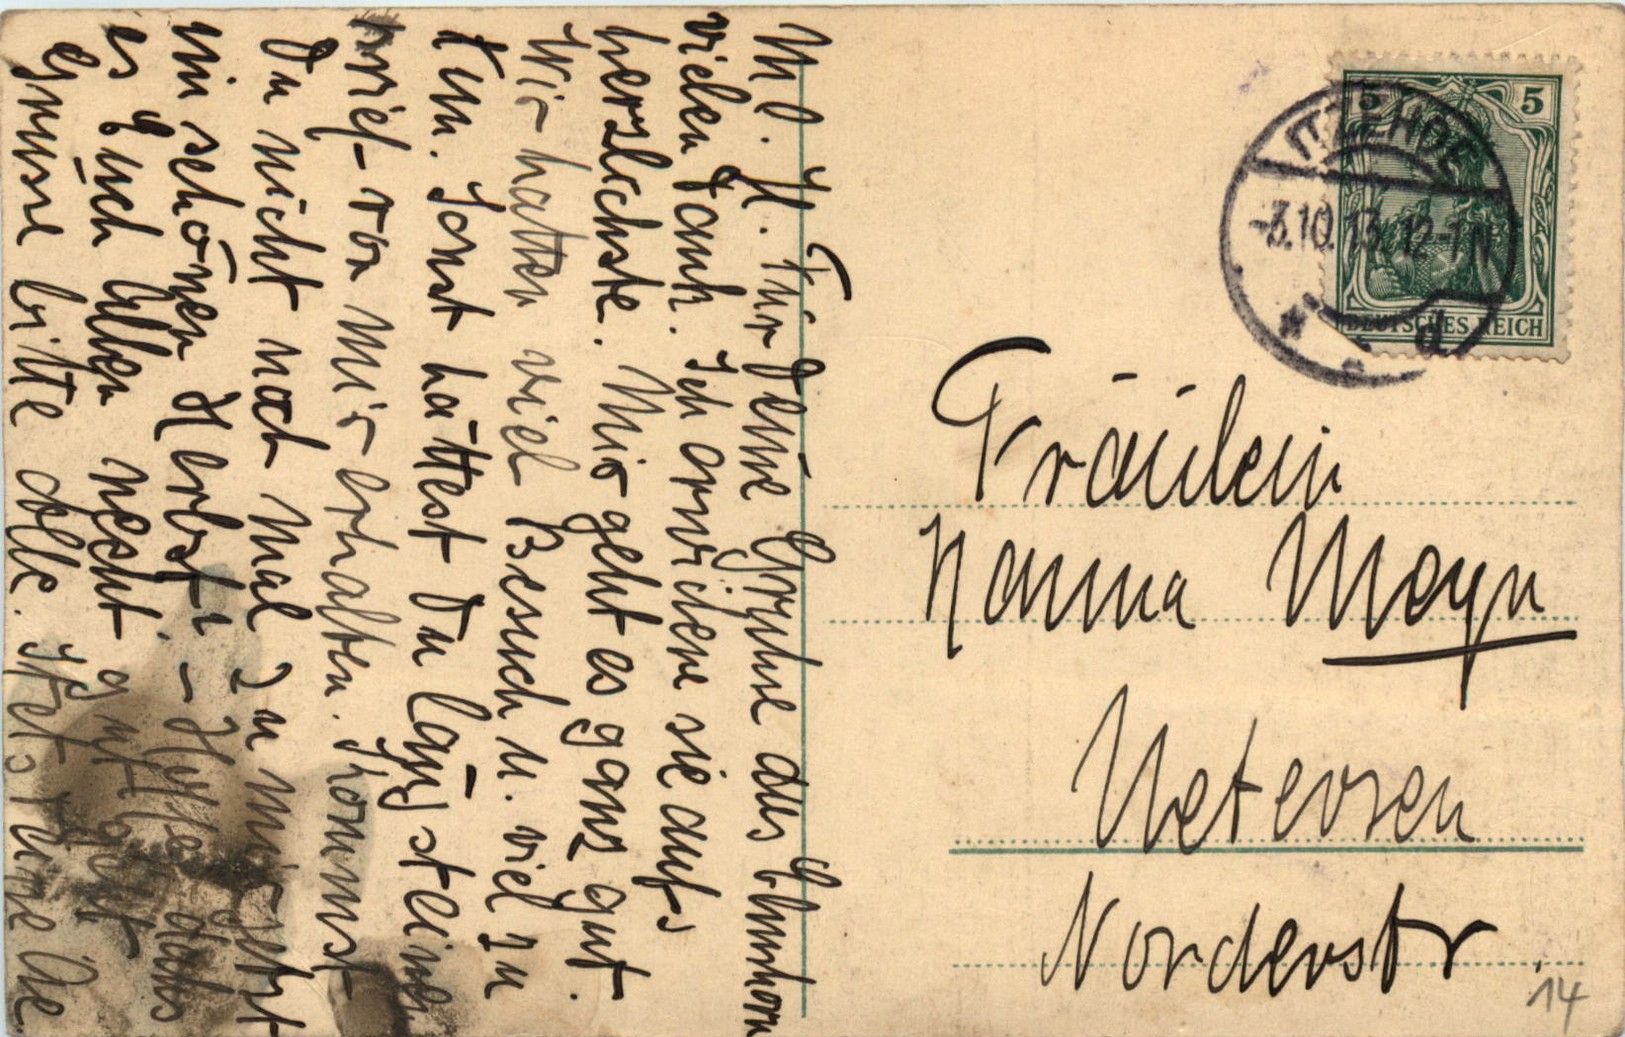 M. l. H. Für Deine Grüße aus Elmshorn
vielen Dank. Ich erwidere sie aufs
herzlichste. Mir geht es ganz gut.
Wir hatten viel Besuch u. viel zu
tun. Sonst hättest Du längst einen
Brief von mir erhalten. Kommst
Du nicht noch mal zu mir jetzt
im schönen Herbst? – Hoffe daß
es Euch allen recht gut geht
Grüsse bitte alle. Stets Deine
ITZEHOE
-3.10.13. 12-1N
d
5 5
DEUTSCHES REICH
Fräulein
Hanna Meyn
Uetersen
Norderstr
14